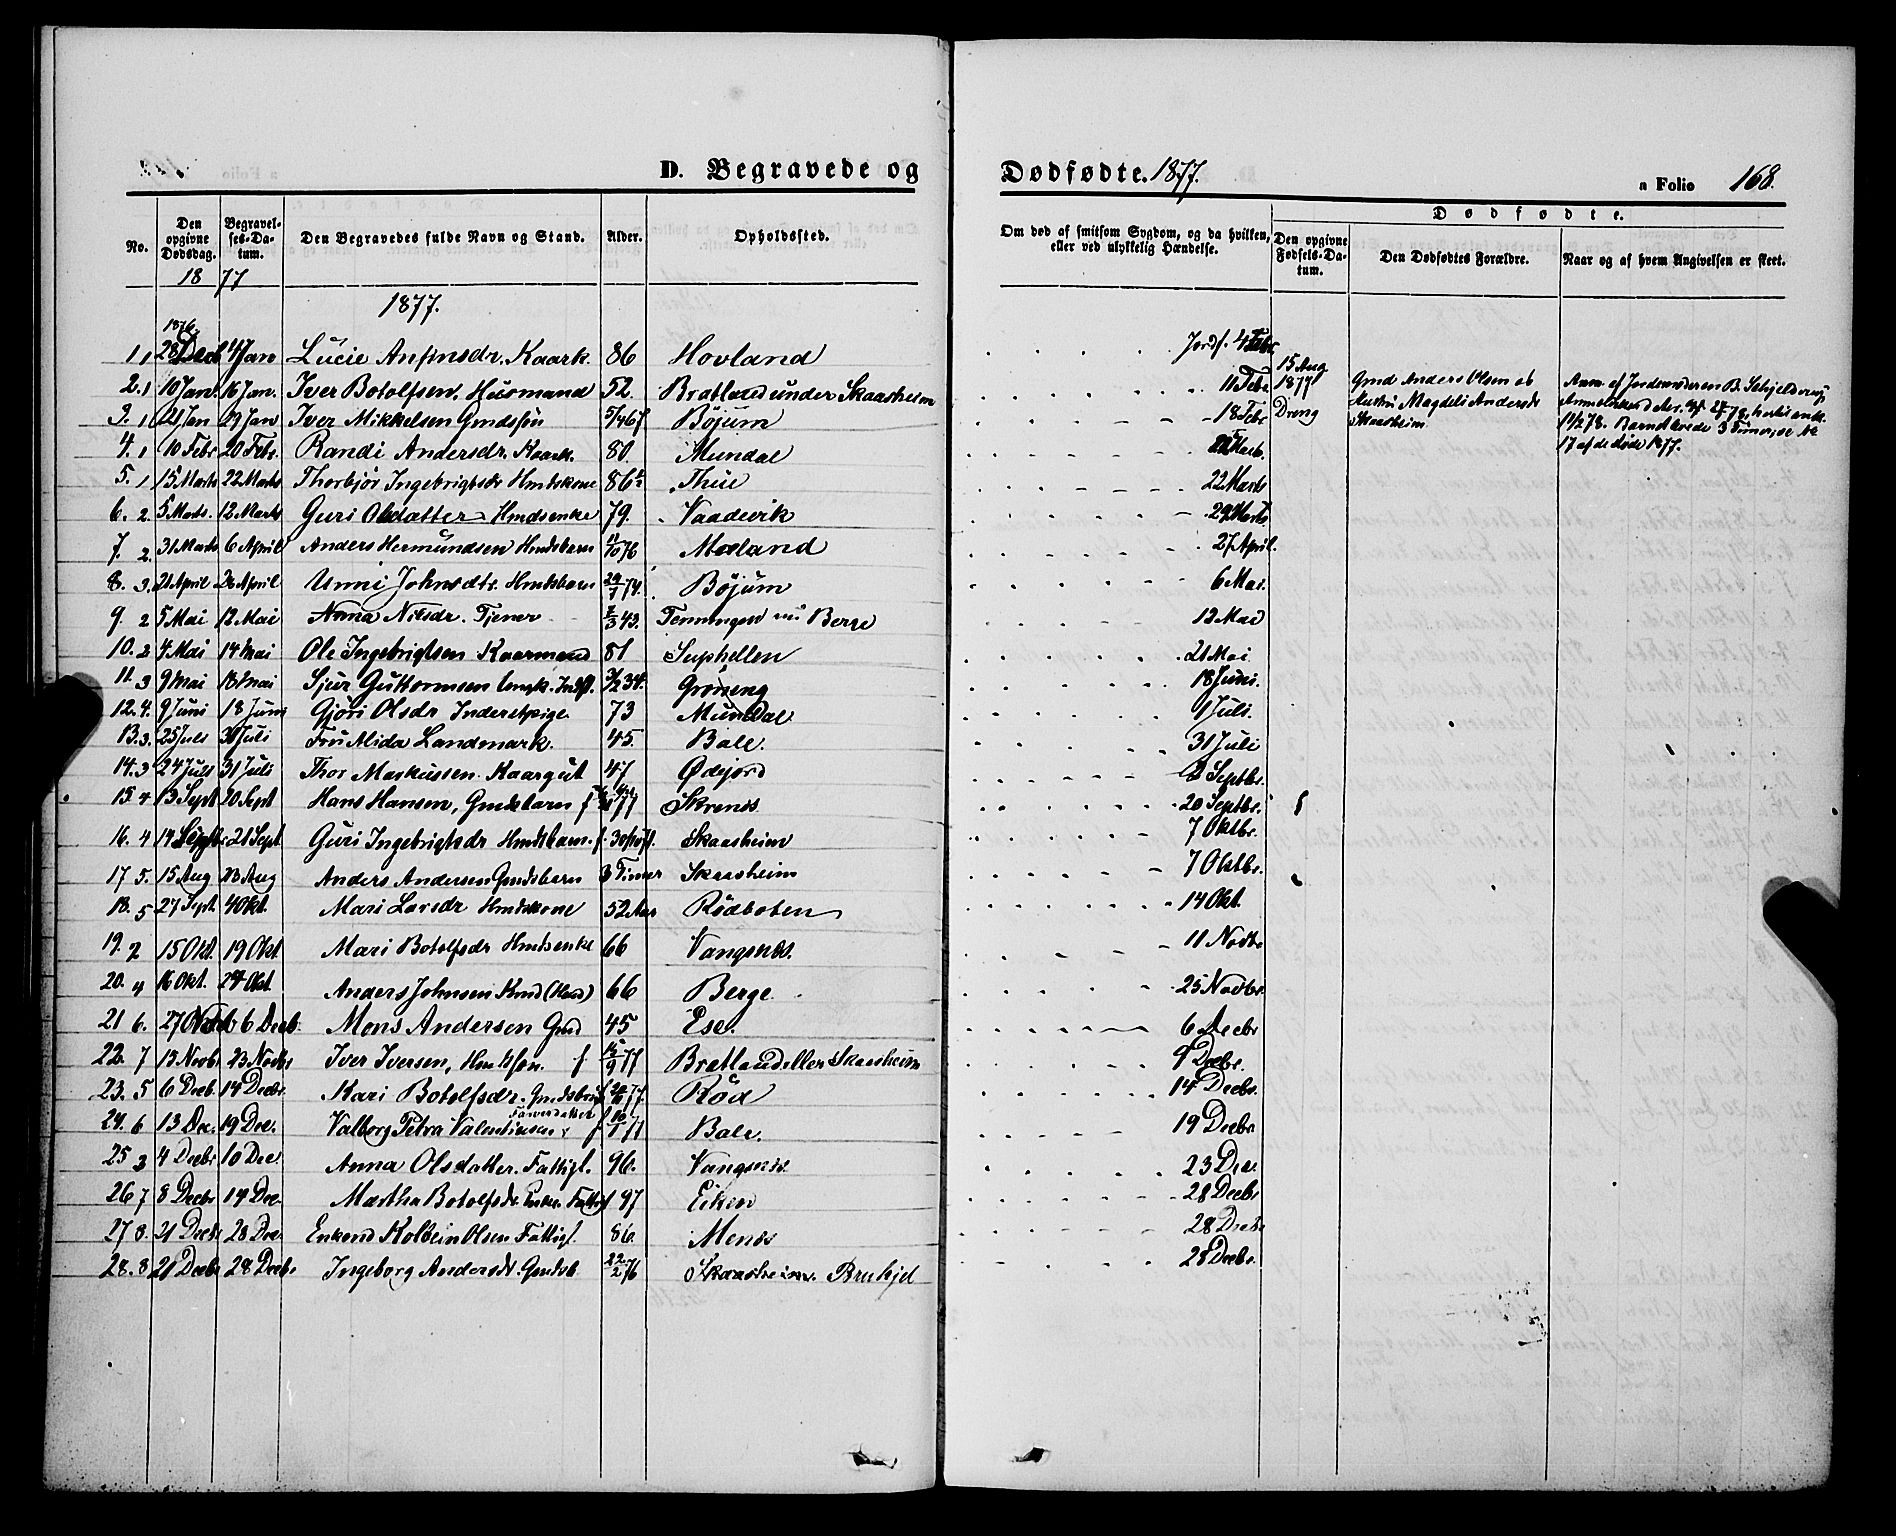 D. Begravede og Dødfødte. 1877. a Folio 168.
No. Den opgivne Dødsdag. Begravelses-Datum. Den Begravedes fulde Navn og Stand. Alder. Opholdssted. Om død af smitsom Sygdom, og da hvilken, eller ved ulykkelig Hændelse. Dødfødte. Den opgivne Fødsels-Datum. Den Dødfødtes Forældre. Naar og af hvem Angivelsen er skeet.
1877
1877.
1876.
1 1 28 Decb 4 Jan Lucie Anfinsdr. Kaark. 86 Hovland Jordf. 4 Febr.
2. 1 10 Jan. 16 Jan. Iver Botolfsen, Husmand 52. Bratland under Skaasheim 11 Febr
3. 1 21 Jan 29 Jan Iver Mikkelsen Gmdssøn 5/4 67 Bøjum 18 Febr
15 Aug 1877 Dreng
Gmd Anders Olsen og Hustru Magdeli Andersdr Skaasheim
Anm. af Jordmoderen B. Schjelderup
17 af de døde 1877.
4. 1 10 Febr 20 Febr. Randi Andersdr. Kaark. 80. Mundal
5. 1 15 Marts 22 Marts Thorbjør Ingebrigtsdr Hmdskone 86 Thue 22 Marts
6. 2. 5 Marts. 12 Marts Guri Olsdatter Hmdsenke 79. Vaadevik 29 Marts
7. 2. 31 Marts 6 April Anders Hermundsen Hmdsbarn 11/10 76 Morland 27 April.
8. 3. 21 April 28 April Unni Johnsdtr. Hmdsbarn 29/1 74. Bøjum 6 Mai.
9. 2 5 Mai 12 Mai Anna Nilsdr. Tjener 2/3 43. Fenningen Berge 12 Mai
10. 2 4 Mai 14 Mai Ole Ingebrigtsen Kaarmand 81 Suphellen 21 Mai
11. 3 9 Mai 18 Mai Sjur Guttormsen 34. Grøneng 18 Juni.
12. 4. 9 Juni 18 Juni Gjøri Olsdr Inderstpige. 73 Mundal 1 Juli.
13. 3. 25 Juli 31 Juli Fru Mida Landmark. 45. Bale. 31 Juli
14. 3 24 Juli 31 Juli Thor Markussen. Kaargut 47 Ødejord 2 Septbr.
15. 4 13 Sept 20 Sept Hans Hansen, Gmdsbarn f 77 Skrenes 20 Septbr.
16. 4 14 Septbr 21 Sept Guri Ingebrigtsdr Hmdsbarn. f. Skaasheim 7 Oktbr.
17 5. 15 Aug 23 Aug Anders Andersen Gmdsbarn 3 Timer Skaasheim 7 Oktbr.
18. 5 27 Sept. 4 Okt. Mari Larsdr Hmdskone 52 Aar Rødboten 14 Okt.
19. 2 15 Okt. 19 Okt. Mari Botolfsdr Hmdsenke 66 Vangsnes. 11 Novbr
20. 4 16 Okt. 24 Okt. Anders Johnsen Kmd (Hmd) 66 Berge 25 Novbr.
21 6. 27 Novb 6 Decb. Mons Andersen Gmd 45 Ese. 6 Decbr
22. 7 15 Novbr 23 Novbr Iver Iversen, Hmdssøn. f 15/9 77 Bratland eller Skaasheim 9 Decbr.
23. 5 6 Decb 14 Decbr. Kari Botolfsdr. Gmdsbarn f 77. Rød 14 Decbr.
24. 6 13 Dec. 19 Dec. Valborg Petra Valentinsen Farverdatter f 77 Bale. 19 Decbr
25 3 4 Decbr 10 Dec. Anna Olsdatter. Fattigl. 96. Vangsnes. 23 Dec.
26 7 8 Decbr 14 Dec. Martha Botolfsdr Enke. Fattigl 97 Eiken 28 Decbr
27 8. 21 Decbr 28 Dec. Enkemd Kolbein Olsen Fattigl. 86. Menes 28 Decbr
28. 8 21 Decbr 28 Decbr Ingeborg Andersdr. Gmdsb. 22/2 76 Skaasheim. Bruhjel 28 Decbr.